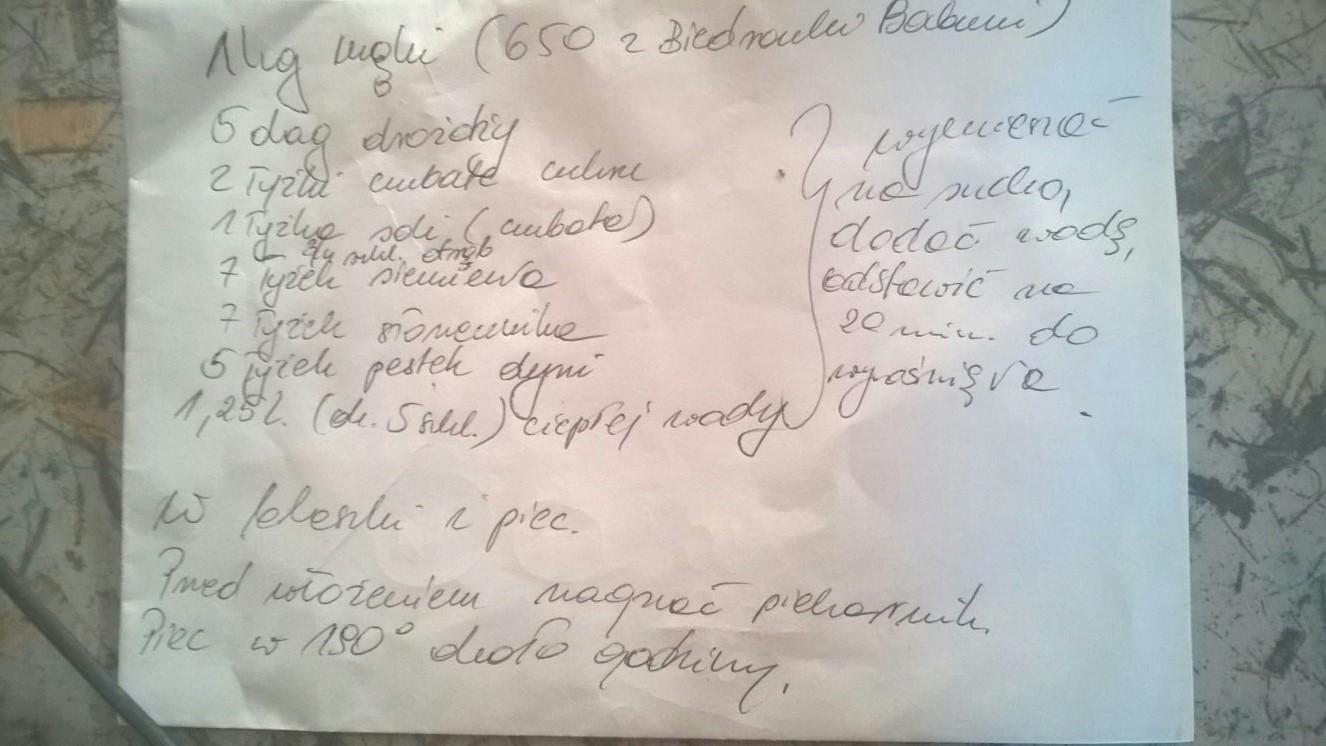 1 kg mąki (650 z Biedronki Babuni)
5 dag drożdży
2 łyżki czubate cukru
1 łyżka soli (czubata)
3/4 szkl. otrąb
7 łyżek siemienia
7 łyżek słonecznika
5 łyżek pestek dyni
1,25 l. (ok. 5 szkl.) ciepłej wody
wymieszać
na sucho,
dodać wodę,
odstawić na
20 min. do
wyrośnięcia.
W foleszki i piec.
Przed włożeniem nagrzać piekarnik.
Piec w 190° około godziny.